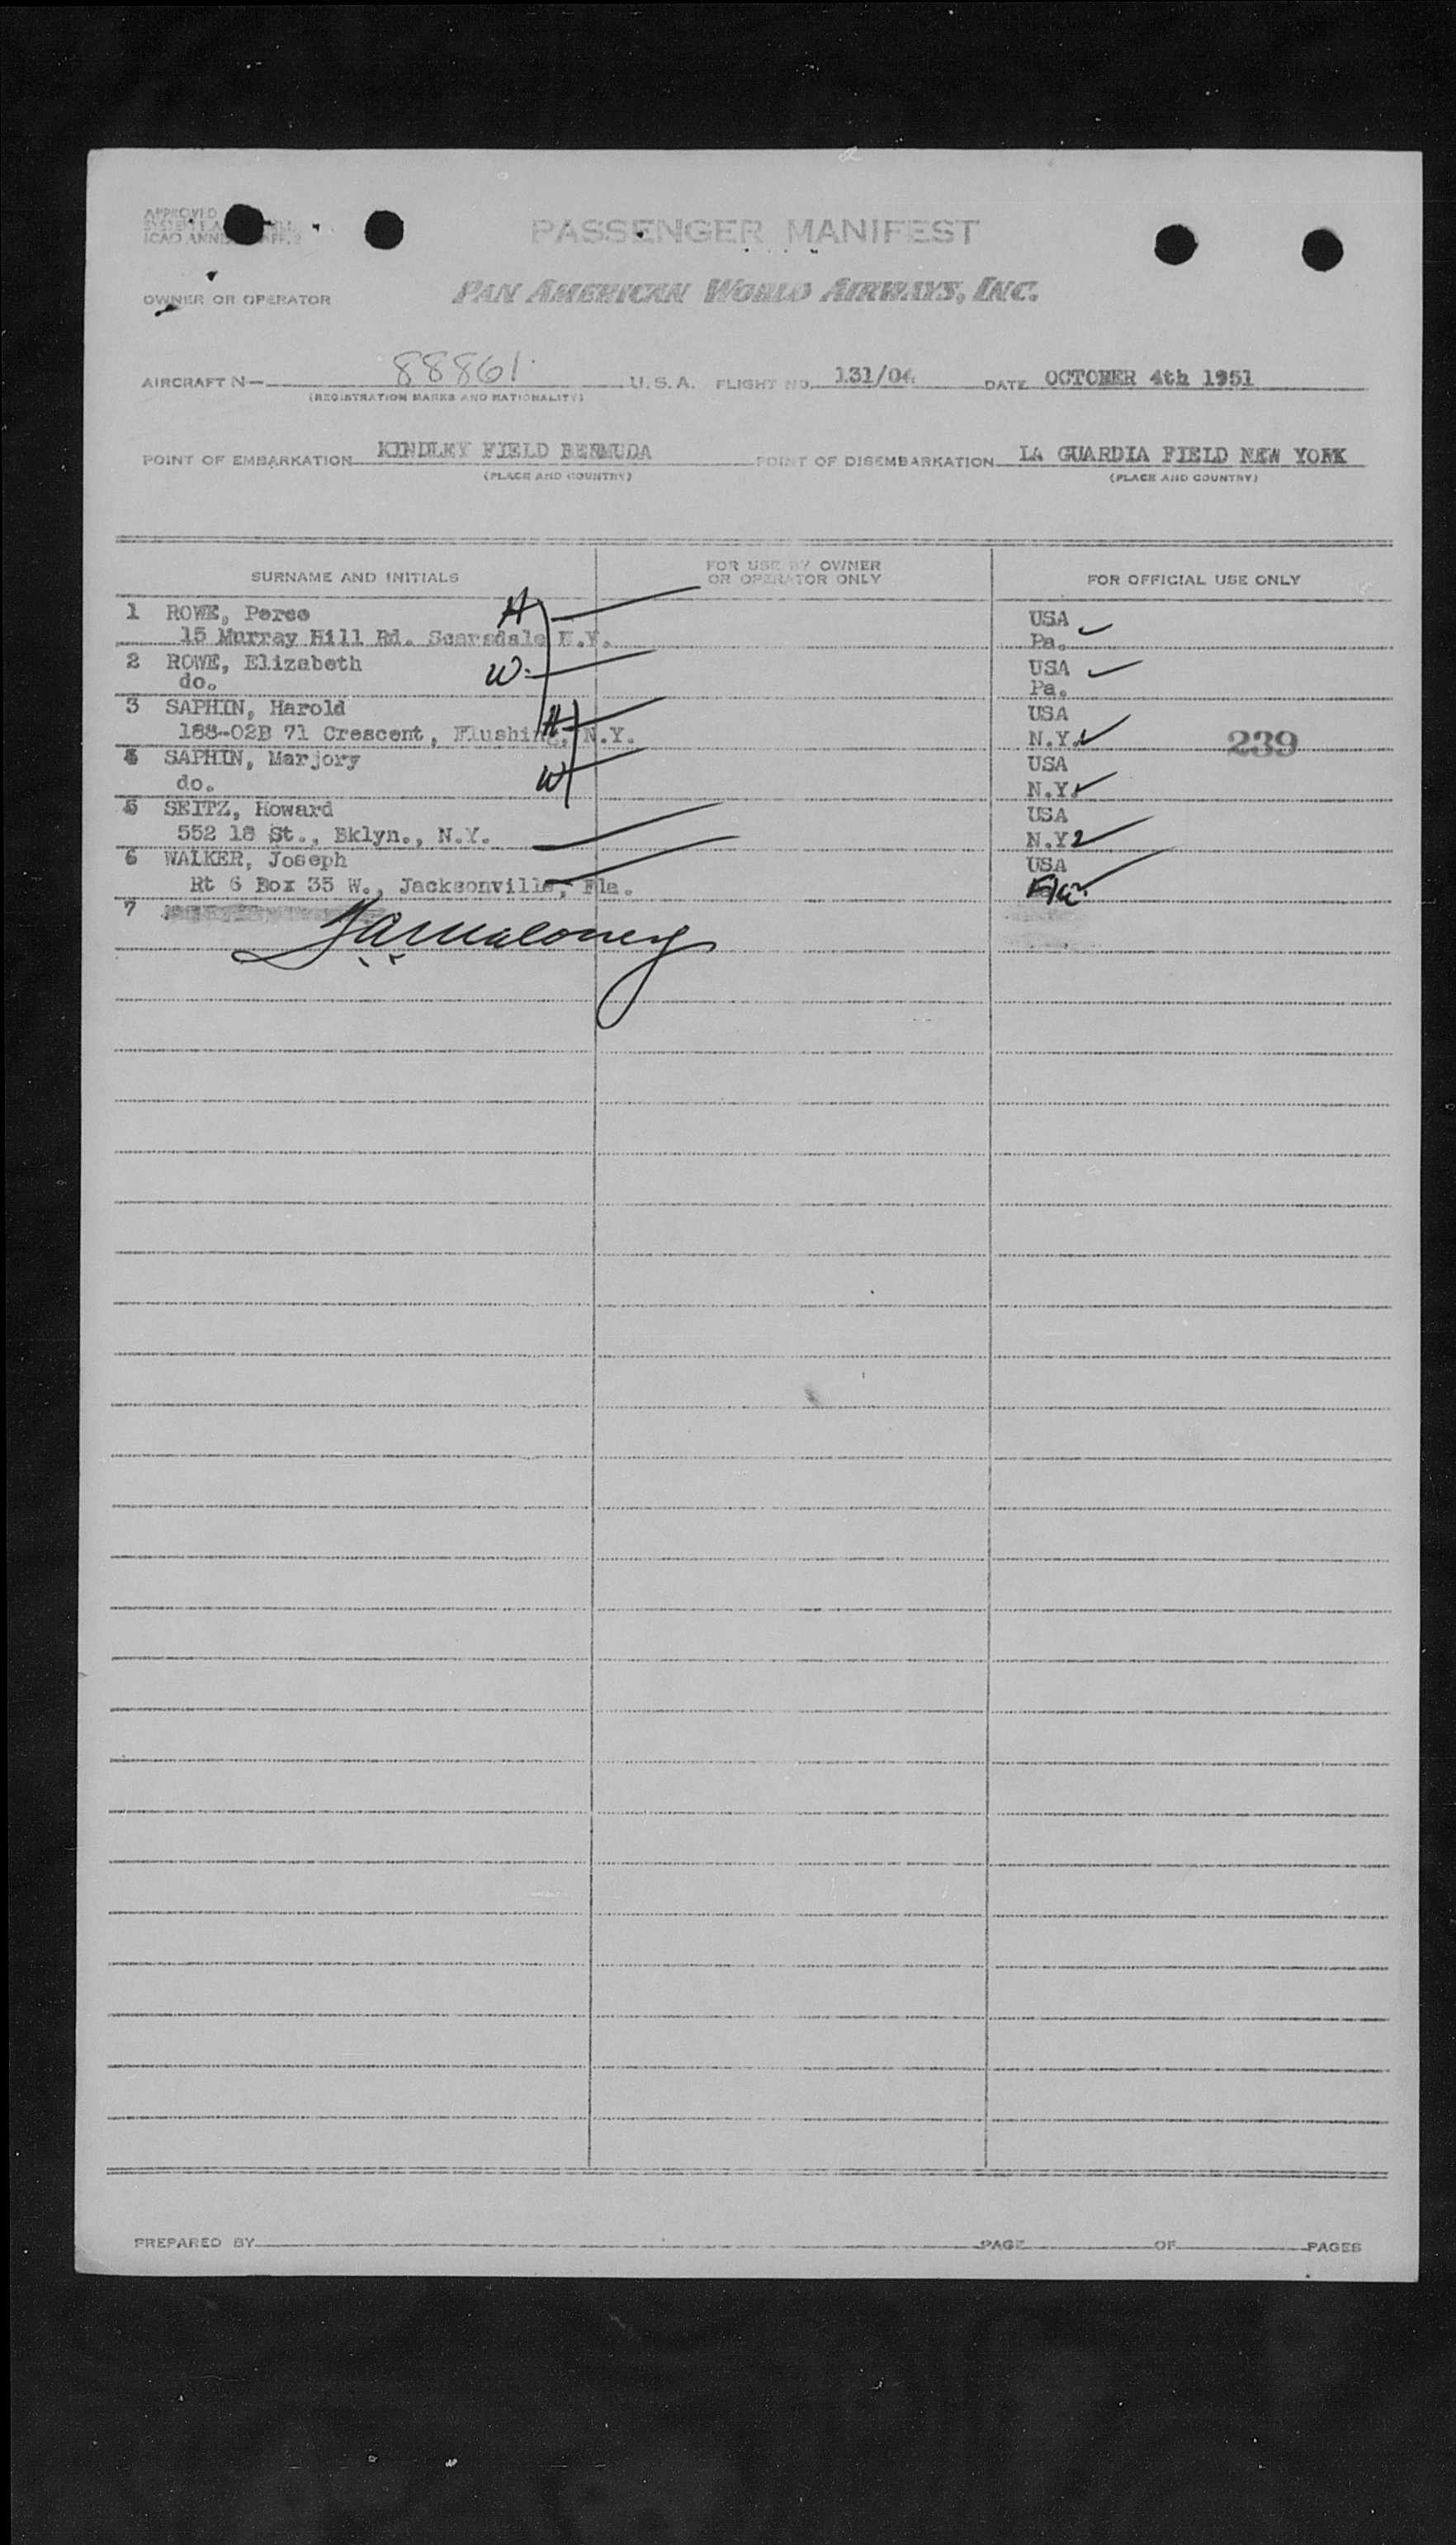 APPROVED
ICAO ANNEX
PASSENGER MANIFEST
OWNER OR OPERATOR PAN AMERICAN WORLD AIRWAYS, INC.
AIRCRAFT N- 88861 U.S.A. FLIGHT NO. 131/04 DATE OCTOBER 4th 1951
(REGISTRATION MARKS AND NATIONALITY)
POINT OF EMBARKATION KINDLEY FIELD BERMUDA POINT OF DISEMBARKATION LA GUARDIA FIELD NEW YORK
(PLACE AND COUNTRY) (PLACE AND COUNTRY)
SURNAME AND INITIALS FOR USE BY OWNER OR OPERATOR ONLY FOR OFFICIAL USE ONLY
1 ROWE, Perce H USA
15 Murray Hill Rd. Scarsdale N.Y. Pa.
2 ROWE, Elizabeth W. USA
do. Pa.
3 SAPHIN, Harold USA
188-02B 71 Crescent, Flushing, N.Y. H N.Y. 239
4 SAPHIN, Marjory USA
do. W N.Y.
5 SEITZ, Howard USA
552 18 St., Bklyn., N.Y. N.Y.
6 WALKER, Joseph USA
Rt 6 Box 35 W., Jacksonville, Fla. Fla.
7
PREPARED BY PAGE OF PAGES